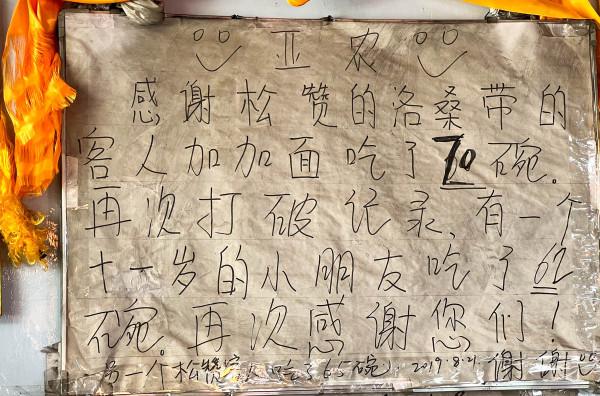 亚农
感谢松赞的洛桑带的
客人加加面吃了70碗。
再次打破记录,有一个
十一岁的小朋友吃了62
碗。再次感谢您们!
另一个松赞客人吃了65碗. 2019.8.21 谢谢